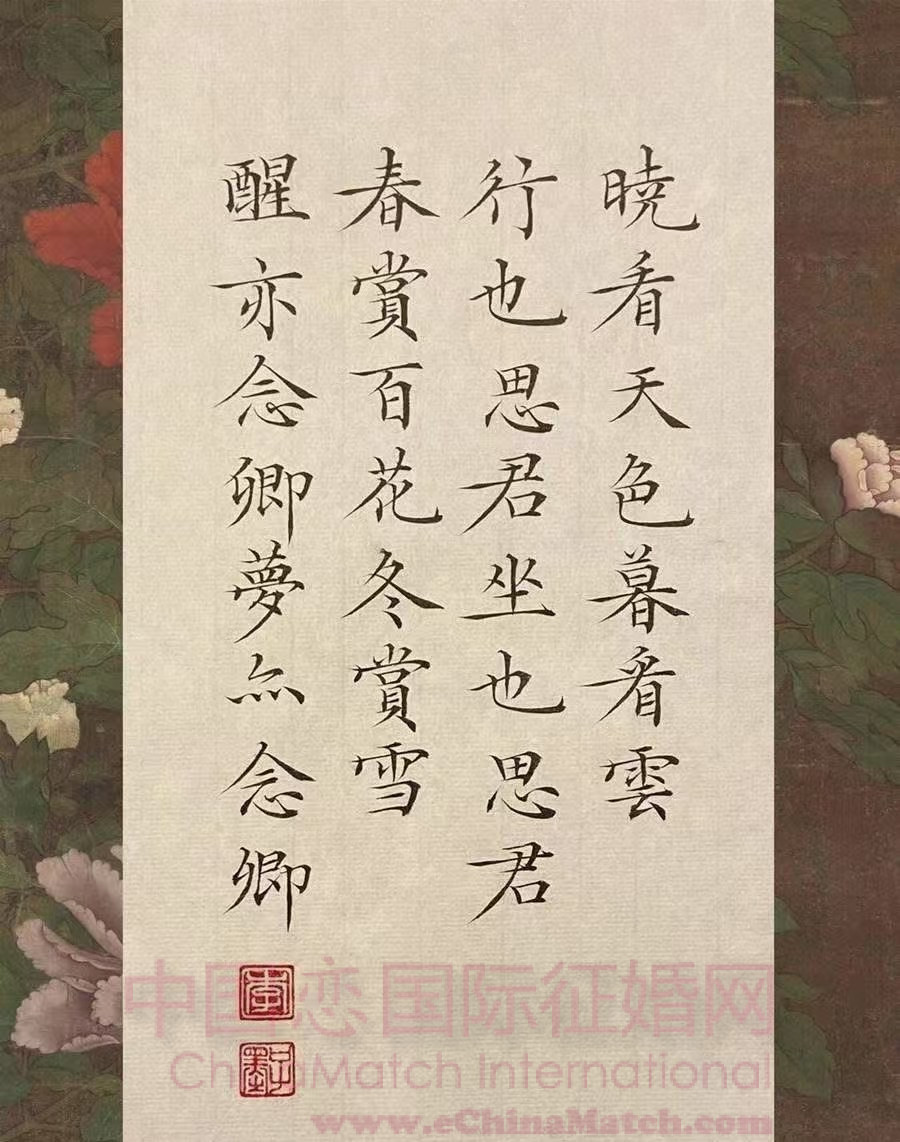 曉看天色暮看雲
行也思君坐也思君
春賞百花冬賞雪
醒亦念卿夢亦念卿
中国恋国际征婚网
ChinaMatch International
www.eChinaMatch.com